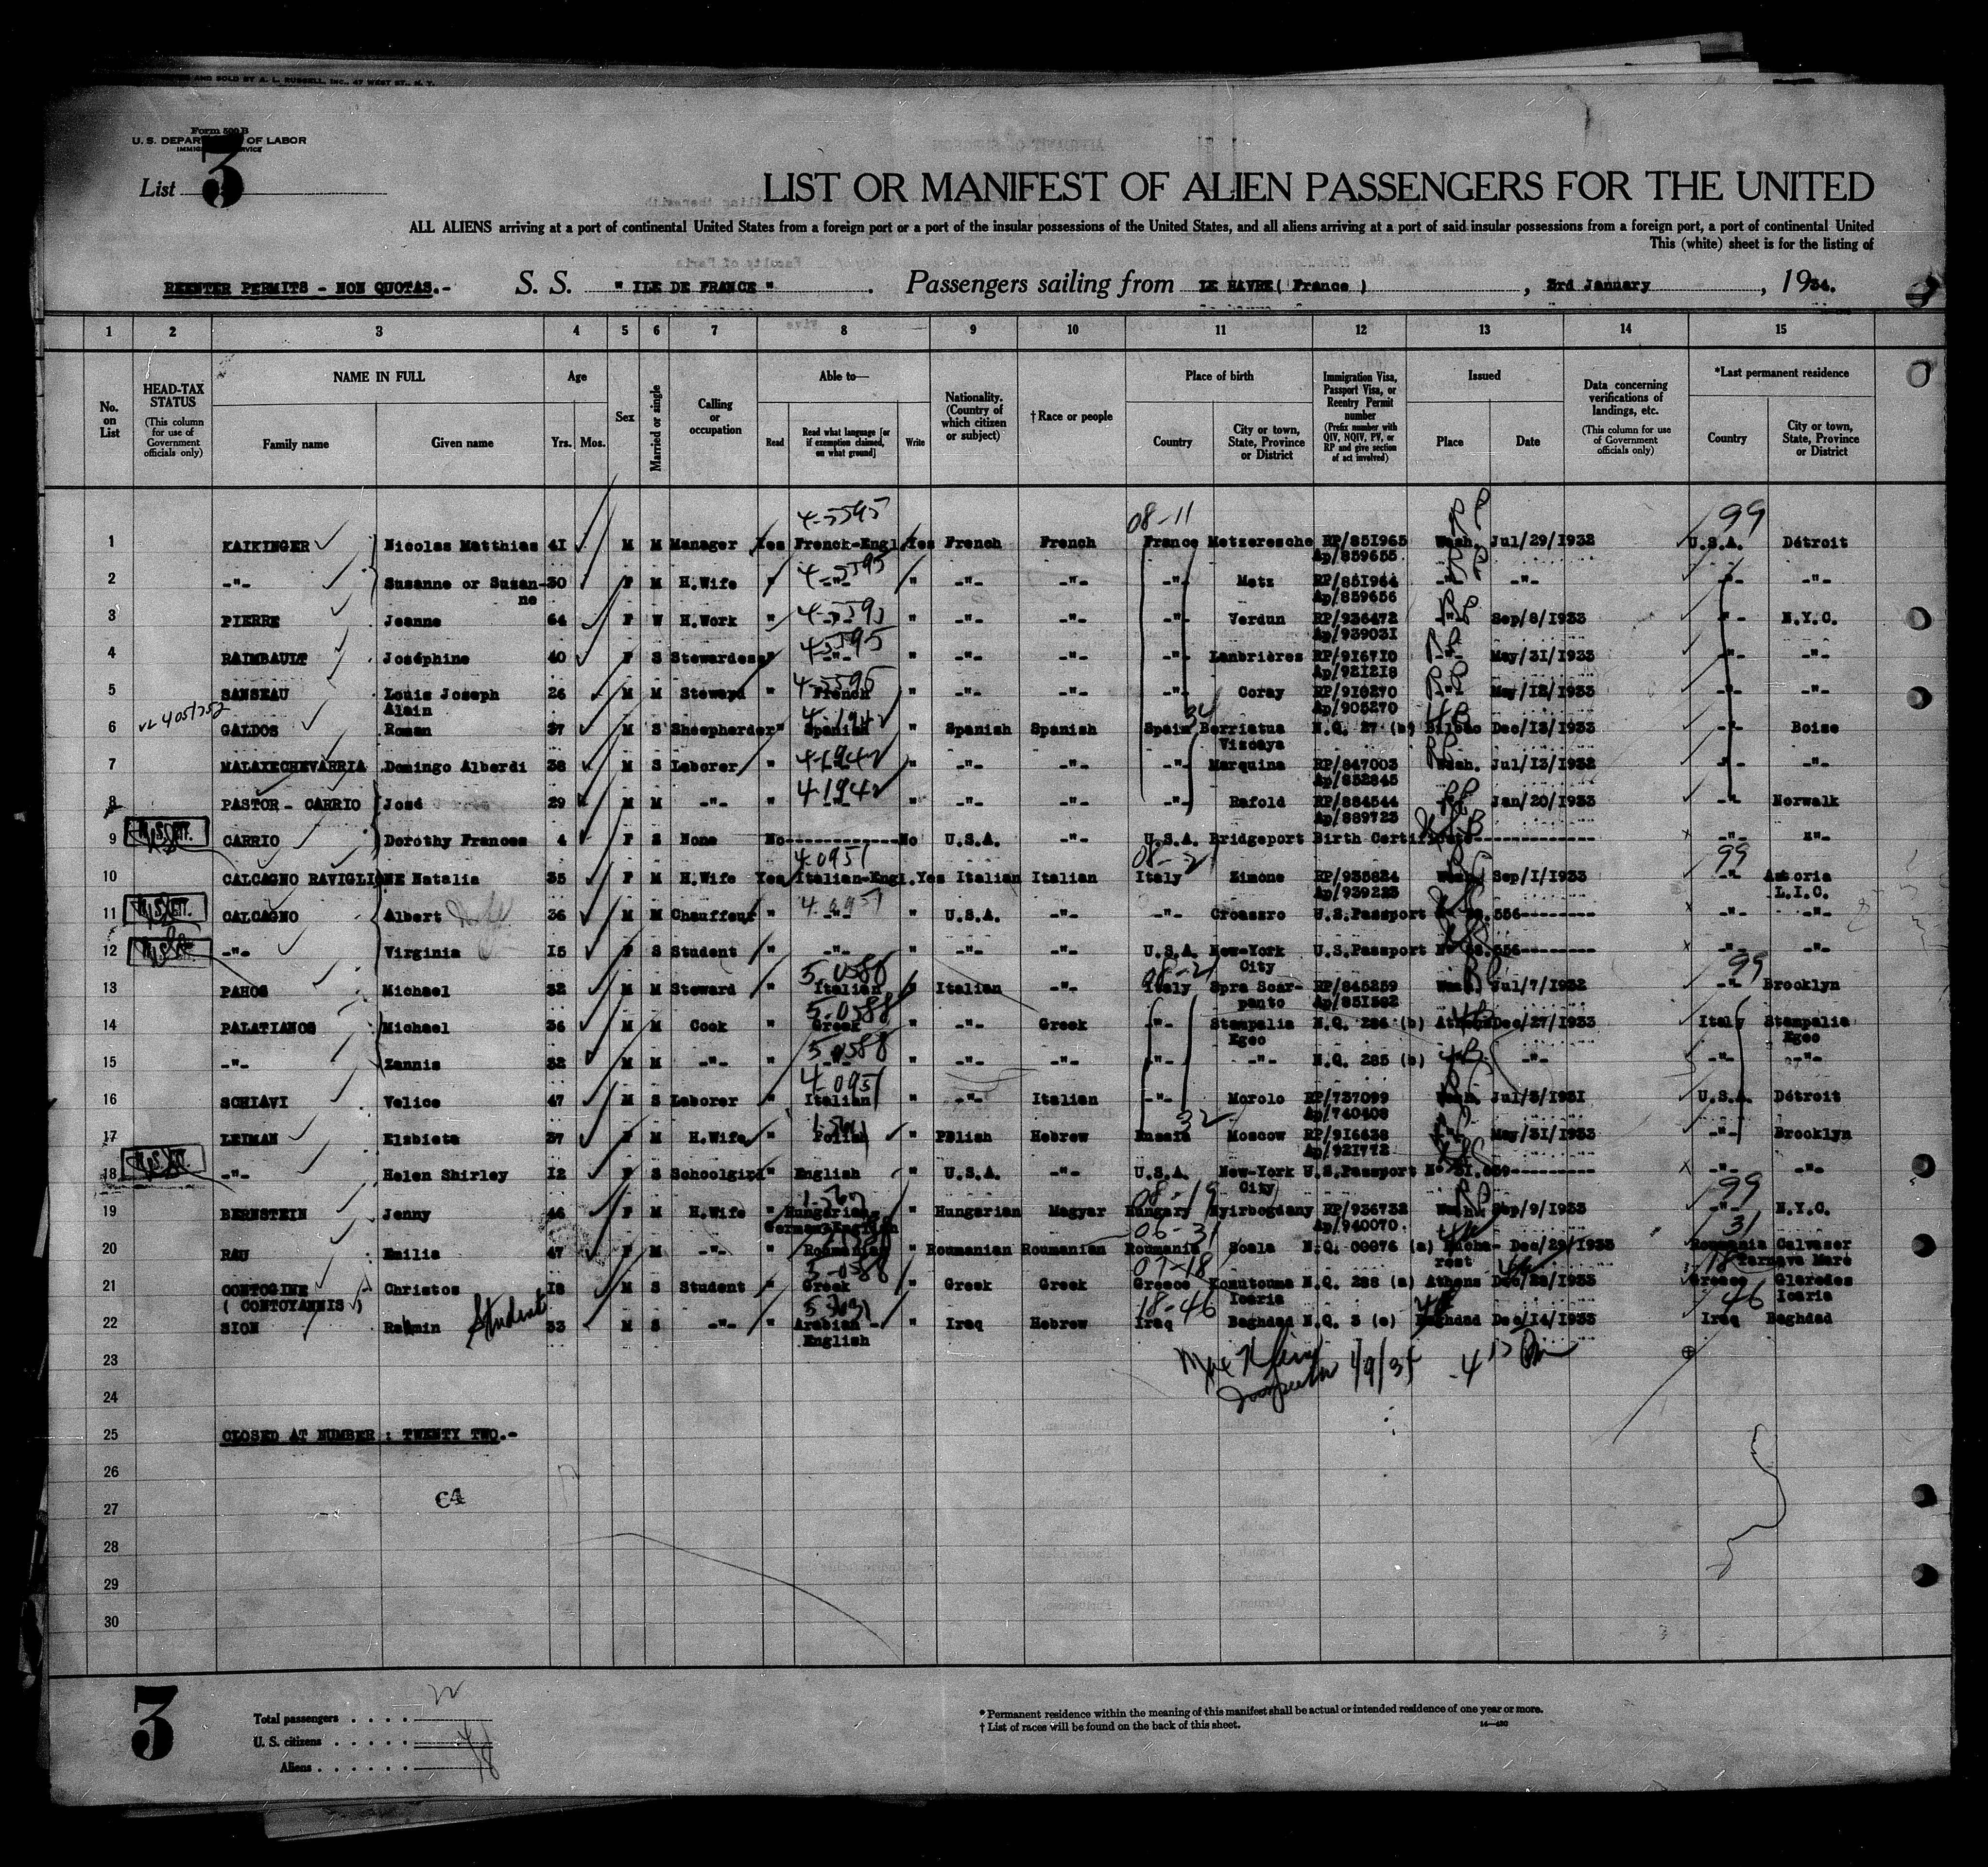 AND SOLD BY A. L. RUSSELL, INC., 47 WEST ST., N. Y.
Form 500 B
U. S. DEPAR OF LABOR
List 3
LIST OR MANIFEST OF ALIEN PASSENGERS FOR THE UNITED
ALL ALIENS arriving at a port of continental United States from a foreign port or a port of the insular possessions of the United States, and all aliens arriving at a port of said insular possessions from a foreign port, a port of continental United
This (white) sheet is for the listing of
REENTER PERMITS - NON QUOTAS.- S. S. " ILE DE FRANCE " . Passengers sailing from LE HAVRE( France ) , 3rd January , 1934.
1 2 3 4 5 6 7 8 9 10 11 12 13 14 15
No. on List
HEAD-TAX STATUS (This column for use of Government officials only)
NAME IN FULL
Family name Given name
Age
Yrs. Mos.
Sex
Married or single
Calling or occupation
Able to—
Read Read what language [or if exemption claimed, on what ground] Write
Nationality. (Country of which citizen or subject)
† Race or people
Place of birth
Country City or town, State, Province or District
Immigration Visa, Passport Visa, or Reentry Permit number (Prefix number with QIV, NQIV, PV, or RP and give section of act involved)
Issued
Place Date
Data concerning verifications of landings, etc. (This column for use of Government officials only)
*Last permanent residence
Country City or town, State, Province or District
4-5595 08-11 RP 99
1 KAIKINGER Nicolas Matthias 41 M M Manager Yes Frenck-Engl. Yes French French France Metzeresche RP/851965 Wash. Jul/29/1932 U.S.A. Détroit
Ap/859655
4-5595
2 -"- Susanne or Susan- 30 F M H.Wife " -"- " -"- -"- -"- Metz RP/851964 -"- -"- -"- -"-
ne Ap/859656
3 PIERRE Jeanne 64 F W H.Work " -"- " -"- -"- -"- Verdun RP/936472 -"- Sep/8/1933 -"- N.Y.C.
Ap/939031
4-5595
4 RAIMBAULT Joséphine 40 F S Stewardess " -"- " -"- -"- -"- Lanbrières RP/916710 -"- May/31/1933 -"- -"-
Ap/921218
4-5595
5 SANSEAU Louis Joseph 26 M M Steward " French " -"- -"- -"- Coray RP/910270 -"- May/12/1933 -"- -"-
Alain Ap/905270
6 GALDOS Roman 37 M S Sheepherder " Spanish " Spanish Spanish Spain Berriatua N.Q. 27 (b) Bilbao Dec/13/1933 -"- Boise
Viscaya
4-1942
7 MALAXECHEVARRIA Domingo Alberdi 38 M S Laborer " -"- " -"- -"- -"- Marquina RP/847003 Wash. Jul/13/1932 -"- -"-
Ap/852845
4-1942
8 PASTOR - CARRIO José 29 M M -"- " -"- " -"- -"- -"- Rafold RP/884544 -"- Jan/20/1933 -"- Norwalk
Ap/889723
9 CARRIO Dorothy Frances 4 F S None No------------No U.S.A. -"- U.S.A. Bridgeport Birth Certificate--------------- -"- "-
4-0951 99
10 CALCAGNO RAVIGLIONE Natalia 35 F M H.Wife Yes Italian-Engl. Yes Italian Italian Italy Zimone RP/935824 Wash. Sep/1/1933 -"- Astoria
Ap/939223 L.I.C.
11 CALCAGNO Albert 36 M M Chauffeur " -"- " U.S.A. -"- -"- Croazzro U.S.Passport -"- -"-
12 -"- Virginia 15 F S Student " -"- " -"- -"- U.S.A. New-York U.S.Passport -"- -"-
City
5-0588 99
13 PAHOS Michael 32 M M Steward " Italian " Italian -"- Italy Spra Scar- RP/845259 Wash. Jul/7/1932 -"- Brooklyn
panto Ap/851382
5-0588
14 PALATIANOS Michael 36 M M Cook " Greek " -"- Greek -"- Stampalia N.Q. 286 (b) Athens Dec/27/1933 Italy Stampalia
Egeo Egeo
5-0588
15 -"- Zannis 32 M M -"- " -"- " -"- -"- -"- -"- N.Q. 285 (b) -"- -"- -"- -"-
4-0951
16 SCHIAVI Velice 47 M S Laborer " Italian " -"- Italian -"- Morolo RP/737099 Wash. Jul/3/1931 U.S.A. Détroit
Ap/740408
32
17 LEIMAN Elzbieta 37 F M H.Wife " Polish " Pölish Hebrew Russia Moscow RP/916638 -"- May/31/1933 -"- Brooklyn
Ap/921772
18 -"- Helen Shirley 12 F S Schoolgird " English " U.S.A. -"- U.S.A. New-York U.S.Passport -"- -"-
City
08-19 99
19 BERNSTEIN Jenny 46 F M H.Wife " Hungarian " Hungarian Magyar Hungary Nyirbogdany RP/936732 Wash. Sep/9/1933 -"- N.Y.C.
German-English Ap/940070.
06-31 31
20 RAU Emilia 47 F M -"- " Roumanian " Roumanian Roumanian Roumania Scala N.Q. 00076 (a) Bucha- Dec/29/1933 Roumania Calvaser
rest Tarnava Mare
5-0588 07-18 18
21 CONTOGINE Christos 18 M S Student " Greek " Greek Greek Greece Kountouma N.Q. 288 (a) Athens Dec/28/1933 Greece Glaredes
( CONTOYANNIS ) Icaria Icaria
18-46 46
22 SION Rahmin Student 33 M S -"- " Arabian - " Iraq Hebrew Iraq Baghdad N.Q. 3 (e) Baghdad Dec/14/1933 Iraq Baghdad
English
23
Inspector
24
25 CLOSED AT NUMBER : TWENTY TWO.-
26
27 C4
28
29
30
3
Total passengers . . . . 22
U. S. citizens . . . . . 4
Aliens . . . . . . 18
* Permanent residence within the meaning of this manifest shall be actual or intended residence of one year or more.
† List of races will be found on the back of this sheet.
14—430